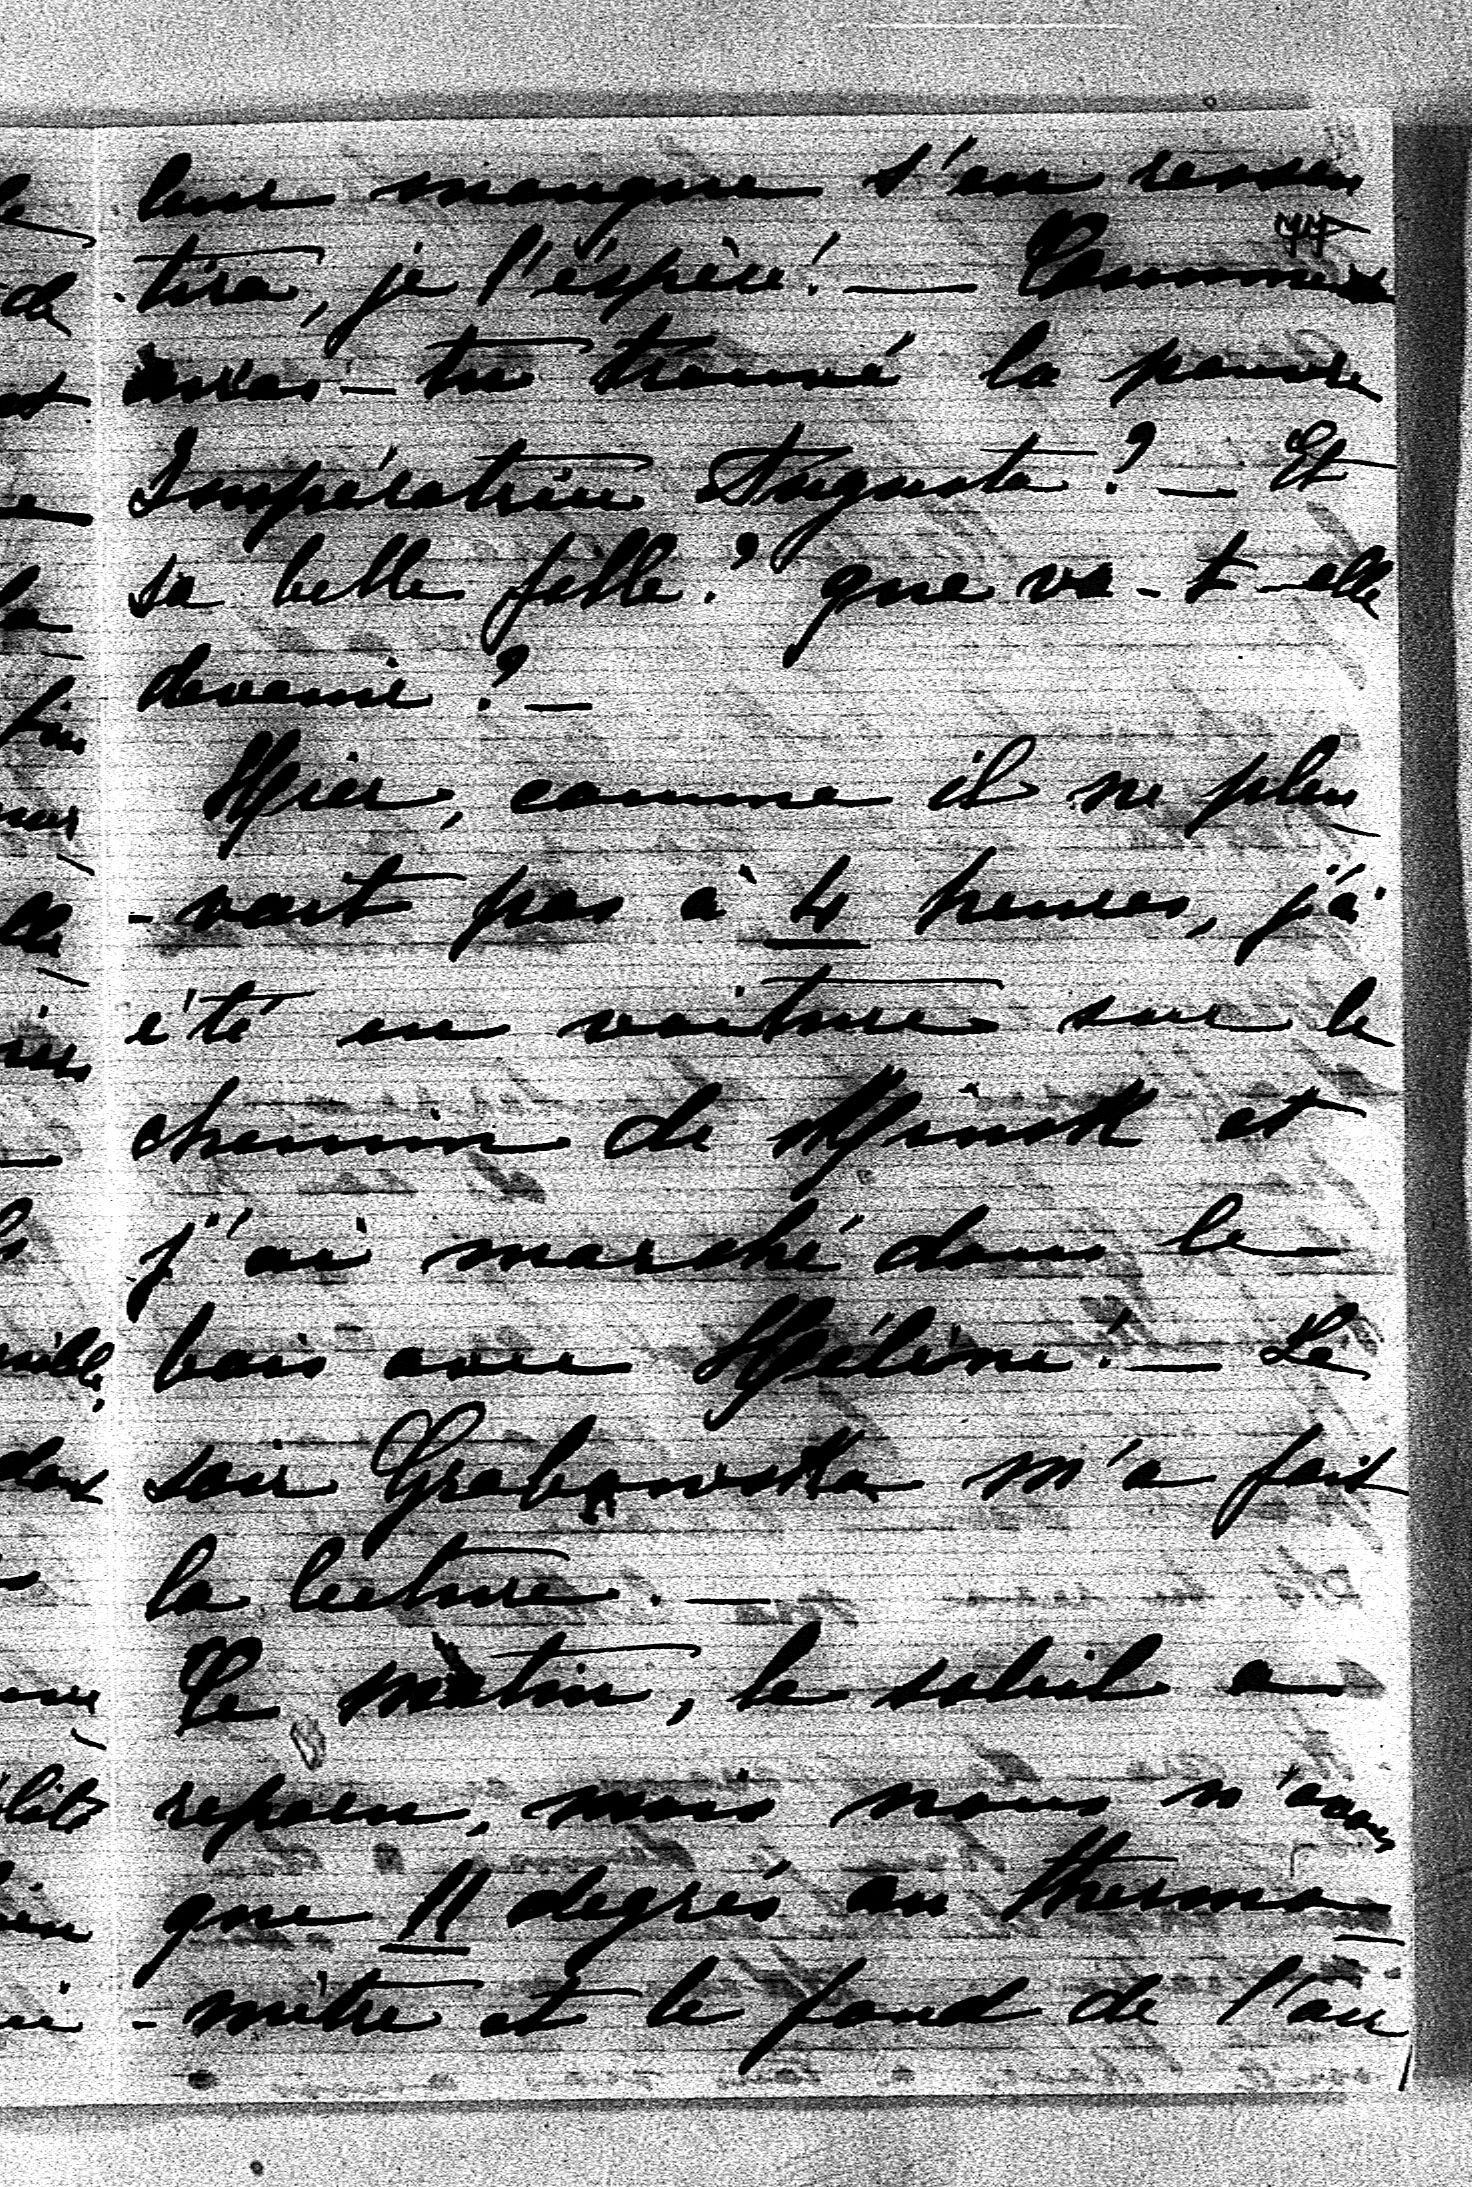 leur manque s'en ressen
77
tira, je l'éspère! — Comment
auras-tu trouvé la pauvre
Impératrice Augusta? — Et
sa belle fille? que va-t-elle
devenir? —
Hier, comme il ne pleu
-vait pas à 4 heures, j'ai
été en voiture sur le
chemin de Minsk et
j'ai marché dans le
bois avec Hélène! — Le
soir Grabowska m'a fait
la lecture. —
Ce matin, le soleil a
reparu, mais nous n'avons
que 11 degrés au thermo
-mètre et le fond de l'air